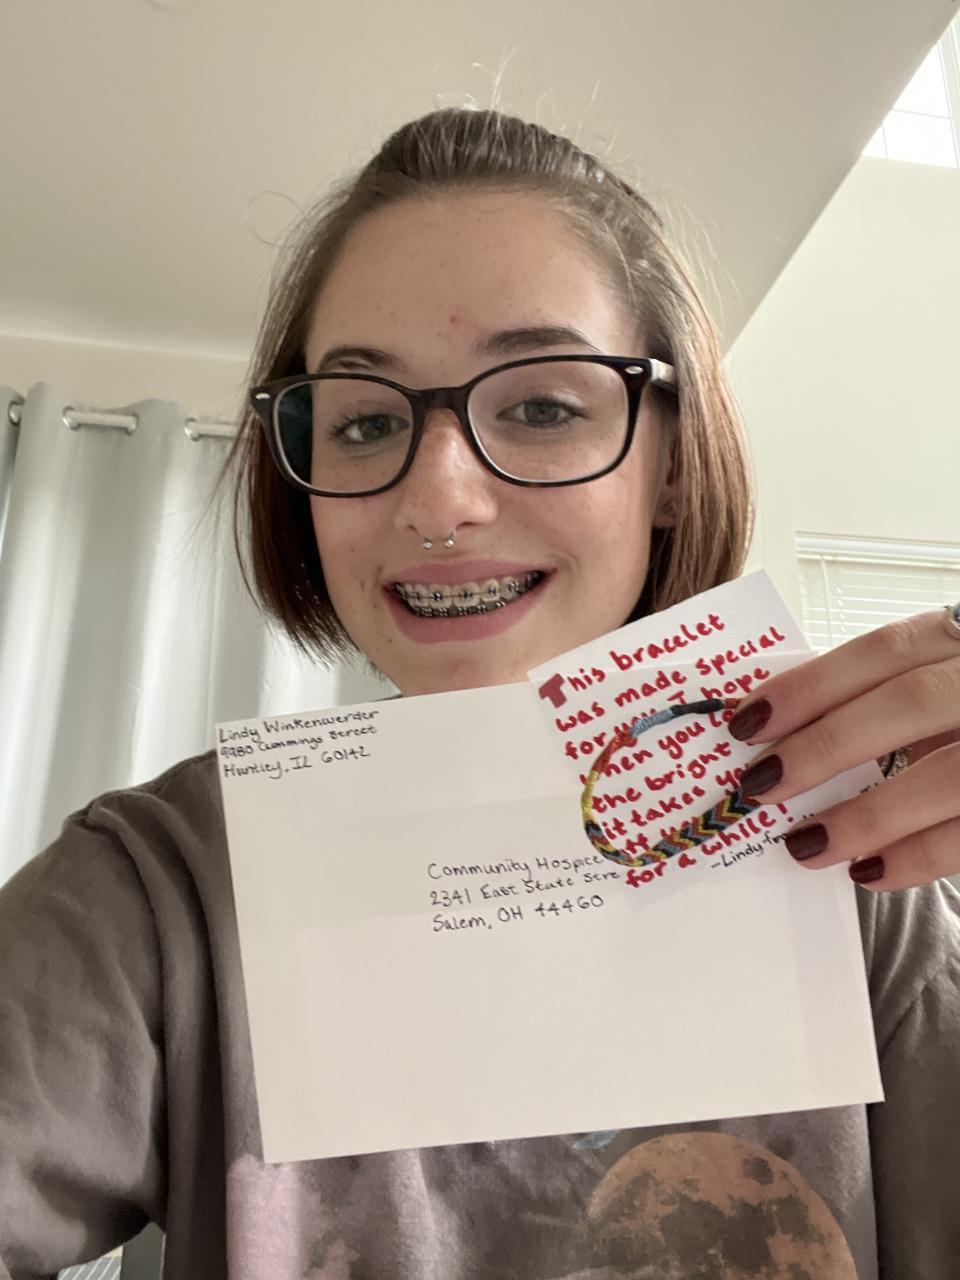 Lindy Winkenwerder
9980 Cummings Street
Huntley, IL 60142
Community Hospice
2341 East State
Salem, OH 44460
This bracelet
was made special
for you I hope
when you
the bright
it takes
for a while!
-Lindy